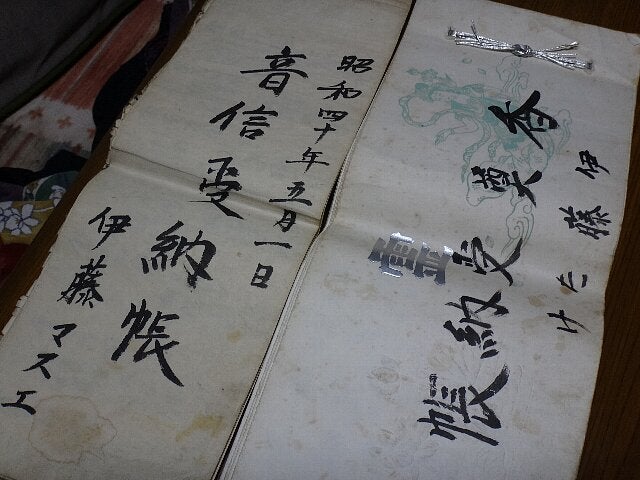 伊藤たけ
香奠受納帳
霊
昭和四十年五月一日
音信受納帳
伊藤マスエ